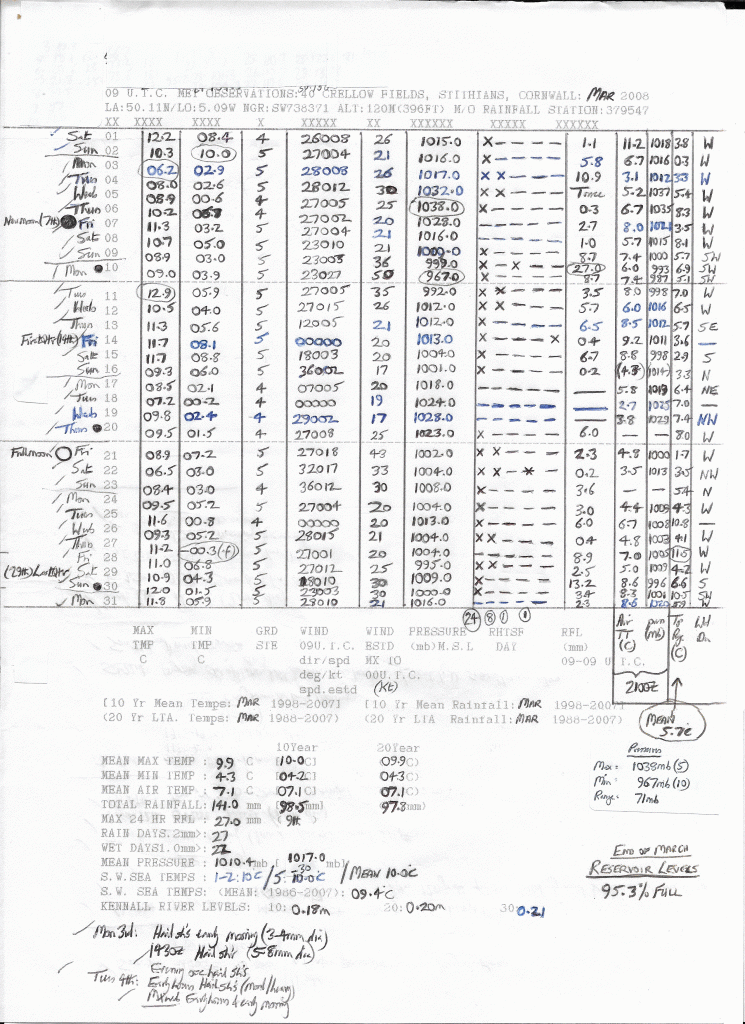 09 U.T.C. MET OBSERVATIONS:40 CRELLOW FIELDS, STITHIANS, CORNWALL: MAR 2008
LA:50.11N/LO:5.09W NGR:SW738371 ALT:120M(396FT) M/O RAINFALL STATION:379547
XX XXXX XXXX X XXXXX XX XXXXXX XXXXX XXXXXX
Sat 01 12.2 08.4 4 26008 26 1015.0 X - - - - 1.1 11.2 1018 3.8 W
Sun 02 10.3 10.0 5 27004 21 1016.0 X - - - - 5.8 6.7 1016 0.3 W
Mon 03 06.2 02.9 5 28008 26 1017.0 X X - - - 10.9 3.1 1012 3.3 W
Tues 04 08.0 02.6 5 28012 30 1032.0 X - - - - Trace 5.2 1037 5.4 W
Wed 05 08.9 00.6 4 27005 25 1038.0 X - - - - 0.3 6.7 1035 8.3 W
Thurs 06 10.2 06.8 4 27002 20 1028.0 X - - - - 2.7 8.0 1021 3.5 W
New moon (7th) Fri 07 11.3 03.2 5 27004 21 1016.0 - - - - 1.0 5.7 1015 8.1 W
Sat 08 10.7 05.0 5 23010 21 1000.0 X - - - - 8.7 7.4 1000 5.7 SW
Sun 09 08.9 03.0 5 23008 36 999.0 - X - - 27.0 6.0 993 6.9 SW
Mon 10 09.0 03.9 5 23027 50 967.0 X - - - - 8.7 7.4 987 5.1 SW
Tues 11 12.9 05.9 5 27005 35 992.0 X X - - - 3.5 8.0 998 7.0 W
Wed 12 10.5 04.0 5 27015 26 1012.0 X - - - - 5.7 6.0 1016 6.5 W
Thurs 13 11.3 05.6 5 12005 21 1012.0 X - - - - 6.5 8.5 1012 5.7 SE
First Qtr (14th) Fri 14 11.7 08.1 5 00000 20 1013.0 X - - - X 0.4 9.2 1011 3.6 —
Sat 15 11.7 08.8 5 18003 20 1004.0 X - - - - 6.7 8.8 998 2.9 S
Sun 16 09.3 06.0 4 36002 17 1001.0 X - - - - 0.2 (4.3) 1014 3.3 N
Mon 17 08.5 02.1 4 07005 20 1018.0 - - - - - — 5.8 1019 6.4 NE
Tues 18 07.2 00.2 4 00000 19 1024.0 - - - - - — 2.7 1025 7.0 —
Wed 19 09.8 02.4 4 29002 17 1028.0 - - - - - — 3.8 1029 7.4 NW
Thurs 20 09.5 01.5 4 27008 25 1023.0 X - - - - 6.0 — — 8.0 W
Full moon Fri 21 08.9 07.2 5 27018 43 1002.0 X X - - - 2.3 4.8 1000 1.7 W
Sat 22 06.5 03.0 5 32017 33 1004.0 X X - X - 0.2 3.5 1013 3.5 NW
Sun 23 08.4 03.0 4 36012 30 1008.0 X - - - - 3.6 — — 5.4 N
Mon 24 09.5 05.2 5 27004 20 1004.0 X - - - - 3.0 4.4 1009 4.3 W
Tues 25 11.6 00.8 4 00000 20 1013.0 X - - - - 6.0 6.7 1008 10.8 —
Wed 26 09.3 05.2 5 28015 21 1004.0 X X - - - 0.4 4.8 1003 4.1 W
Thurs 27 11.2 00.3 (f) 5 27001 20 1004.0 X - - - - 8.9 7.0 1005 11.5 W
Fri 28 11.0 06.8 5 27012 25 995.0 X X - - - 2.5 5.0 1009 4.2 W
(29th) Last Qtr Sat 29 10.9 04.3 5 18010 30 1009.0 X - - - - 13.2 8.6 996 6.6 S
Sun 30 12.0 01.5 5 23003 30 1000.0 X - - - - 3.4 8.3 1006 10.5 SW
Mon 31 11.8 05.9 5 28010 21 1016.0 X - - - - 2.3 8.6 1020 5.9 W
24 8 1 0
MAX MIN GRD WIND WIND PRESSURE RHTSF RFL Air
TMP TMP STE 09U.T.C. BSTD (mb)M.S.L DAY (mm) TT (mb)
C C dir/spd MX TO 09-09 U.T.C. (C) (C)
deg/kt 00U.T.C.
spd.estd (Kt) 2100Z
[10 Yr Mean Temps: MAR 1998-2007] [10 Yr Mean Rainfall: MAR 1998-2007]
(20 Yr LTA. Temps: MAR 1988-2007) (20 Yr LTA Rainfall: MAR 1988-2007)
MEAN 5.7°C
10Year 20Year
MEAN MAX TEMP : 9.9 C [10.0 C] (09.9 C)
MEAN MIN TEMP : 4.3 C [04.2 C] (04.3 C)
MEAN AIR TEMP : 7.1 C [07.1 C] (07.1 C)
TOTAL RAINFALL: 141.0 mm [98.5 mm] (97.8 mm)
MAX 24 HR RFL : 27.0 mm (9th)
RAIN DAYS.2mm>: 27
WET DAYS1.0mm>: 22
MEAN PRESSURE : 1010.4 mb [1017.0]
S.W.SEA TEMPS : 1-2:10°C / 5-30 10.0°C / MEAN 10.0°C
S.W. SEA TEMPS: (MEAN: (1986-2007): 09.4°C
KENNALL RIVER LEVELS: 10: 0.18m 20: 0.20m 30: 0.21
Pressures
Max: 1038mb (5)
Min: 967mb (10)
Range: 71mb
END OF MARCH
RESERVOIR LEVELS
95.3% FULL
Mon 3rd: Hail sh's early morning (3-4mm dia)
1930Z Hail sh's (5-8mm dia)
Evening occ hail sh's
Tues 4th: Early hours Hail sh's (mod/heavy)
early hours & early morning